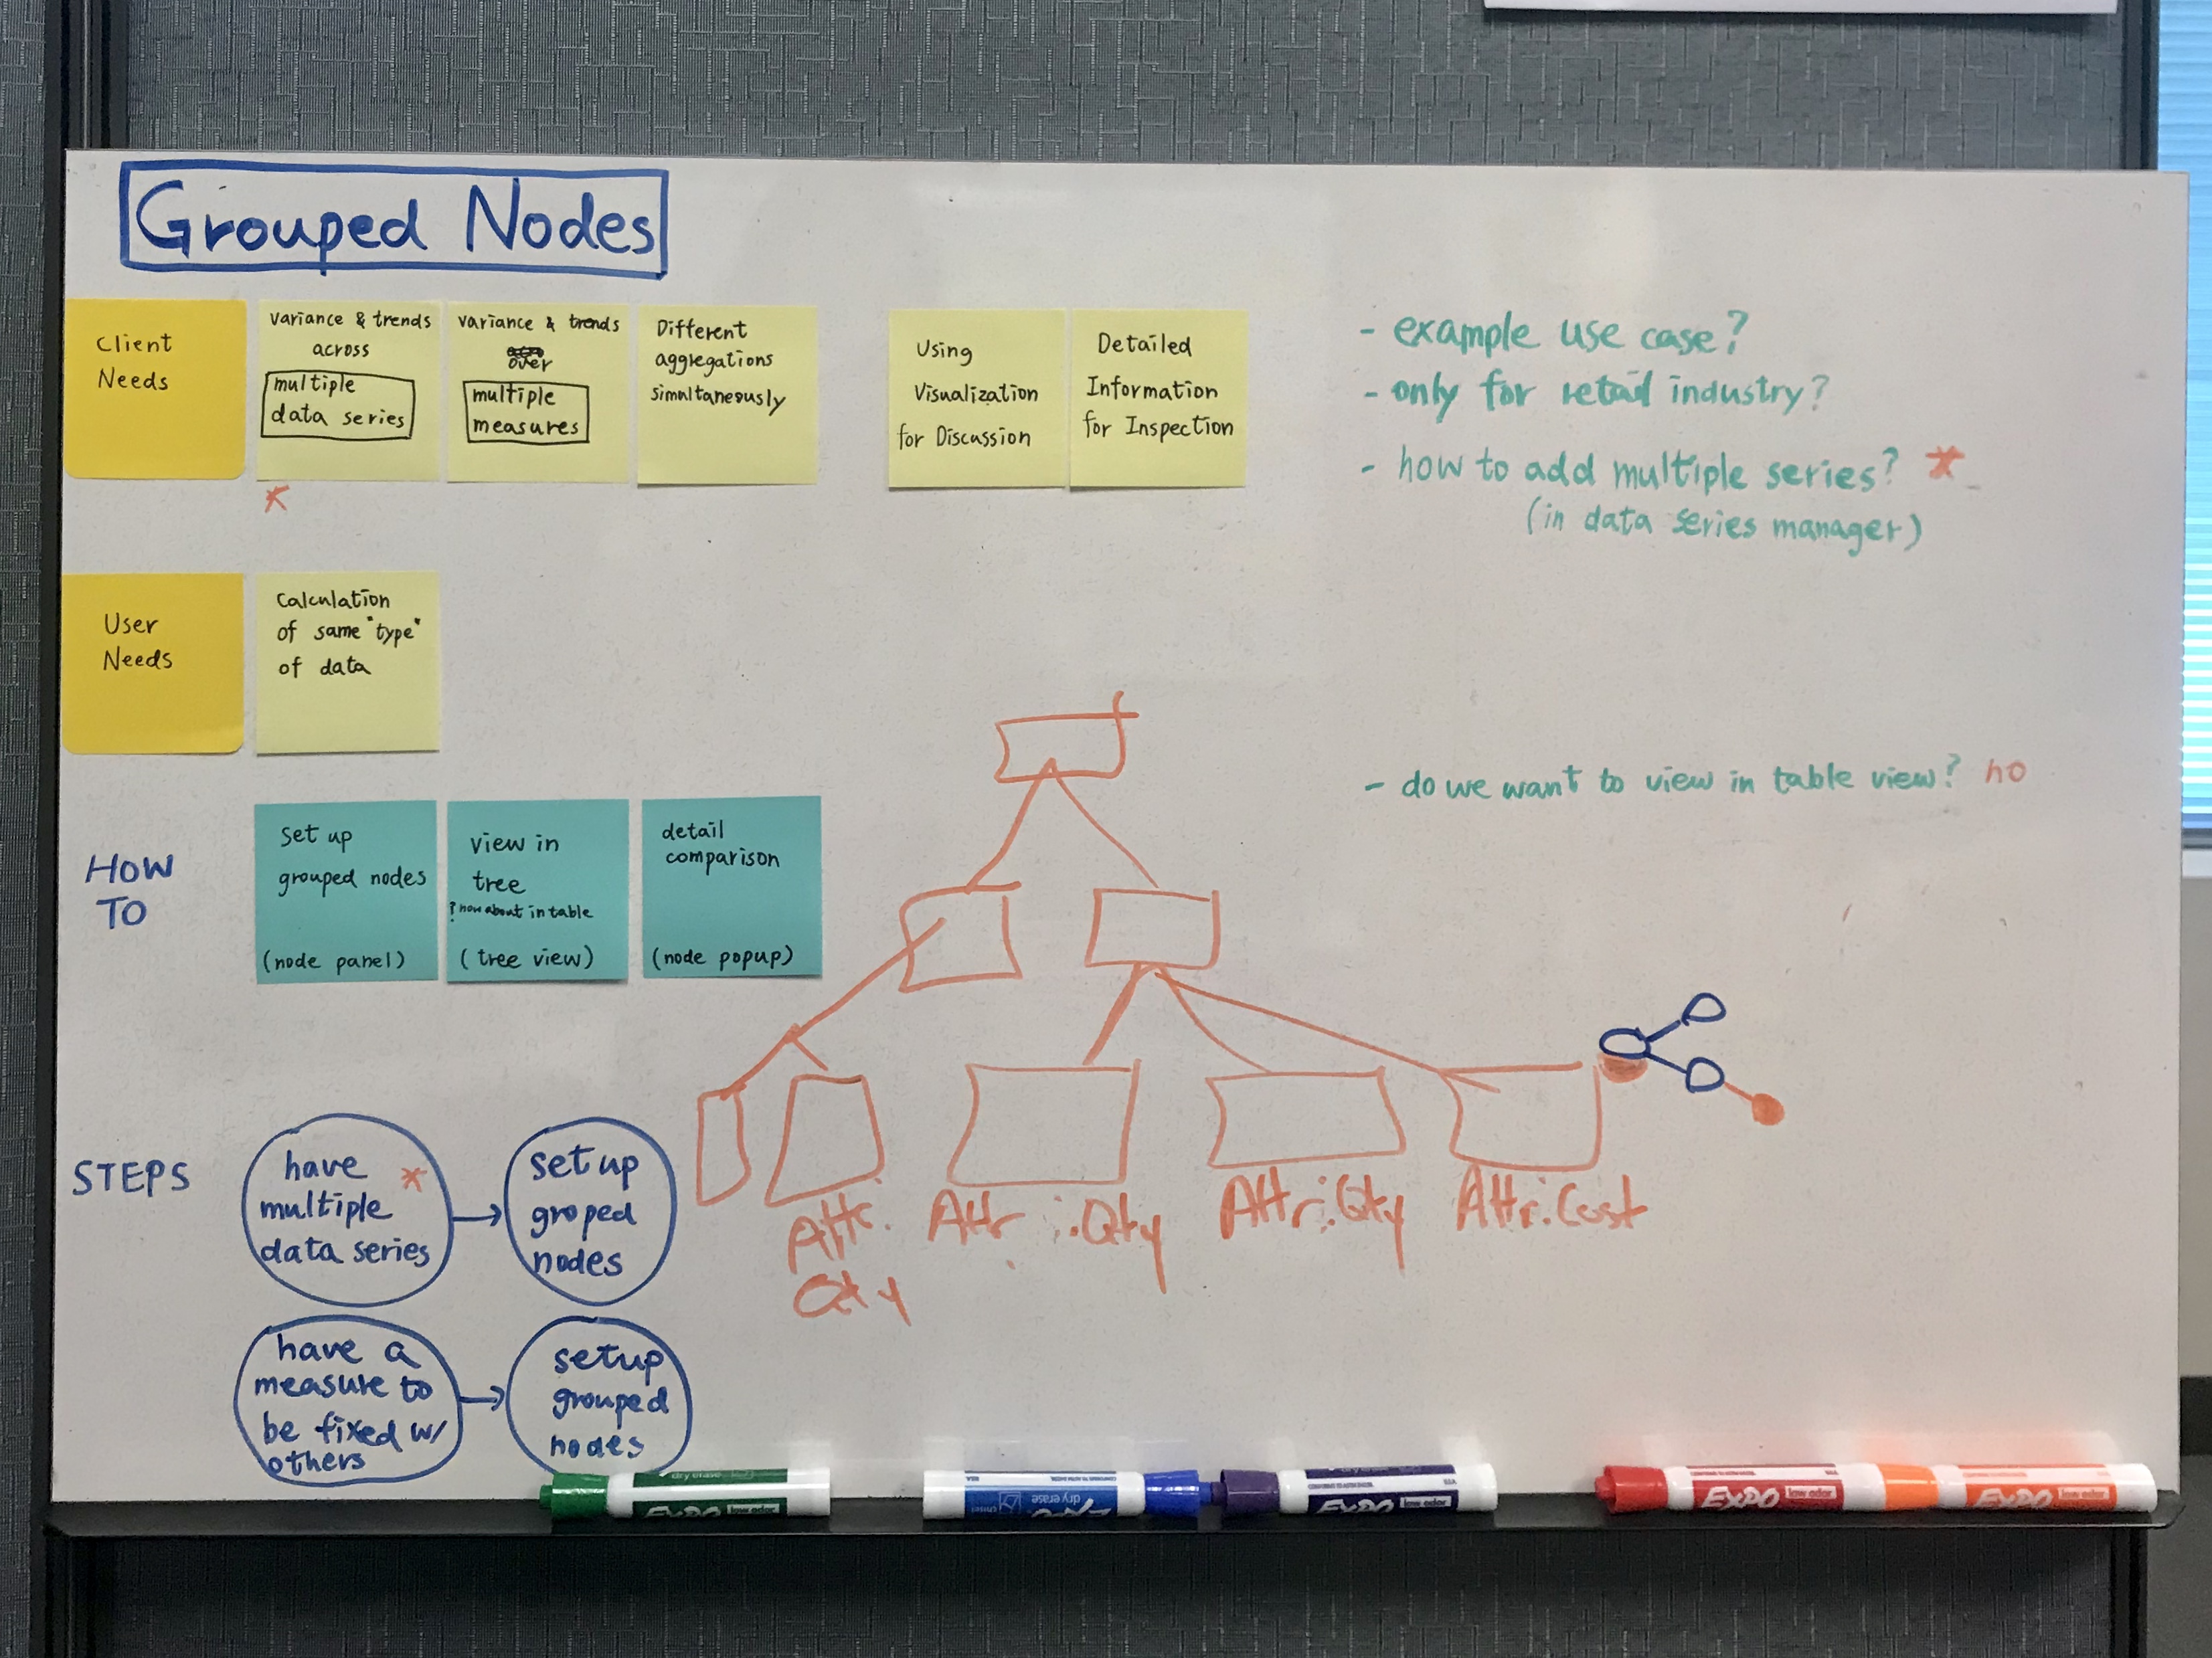 Grouped Nodes
Client
Needs
variance & trends
across
multiple
data series
variance & trends
over
multiple
measures
Different
aggregations
simultaneously
Using
Visualization
for Discussion
Detailed
Information
for Inspection
- example use case?
- only for retail industry?
- how to add multiple series? *
(in data series manager)
*
User
Needs
Calculation
of same "type"
of data
- do we want to view in table view? no
HOW
TO
set up
grouped nodes
(node panel)
view in
tree
? how about in table
(tree view)
detail
comparison
(node popup)
STEPS
have *
multiple
data series
set up
groped
nodes
Attr.
Qty
Attr.Qty
Attr.Qty
Attr.Cost
have a
measure to
be fixed w/
others
setup
grouped
nodes
dry erase
EXPO low odor
dry erase
chisel
EXPO
EXPO low odor
EXPO low odor
EXPO low odor